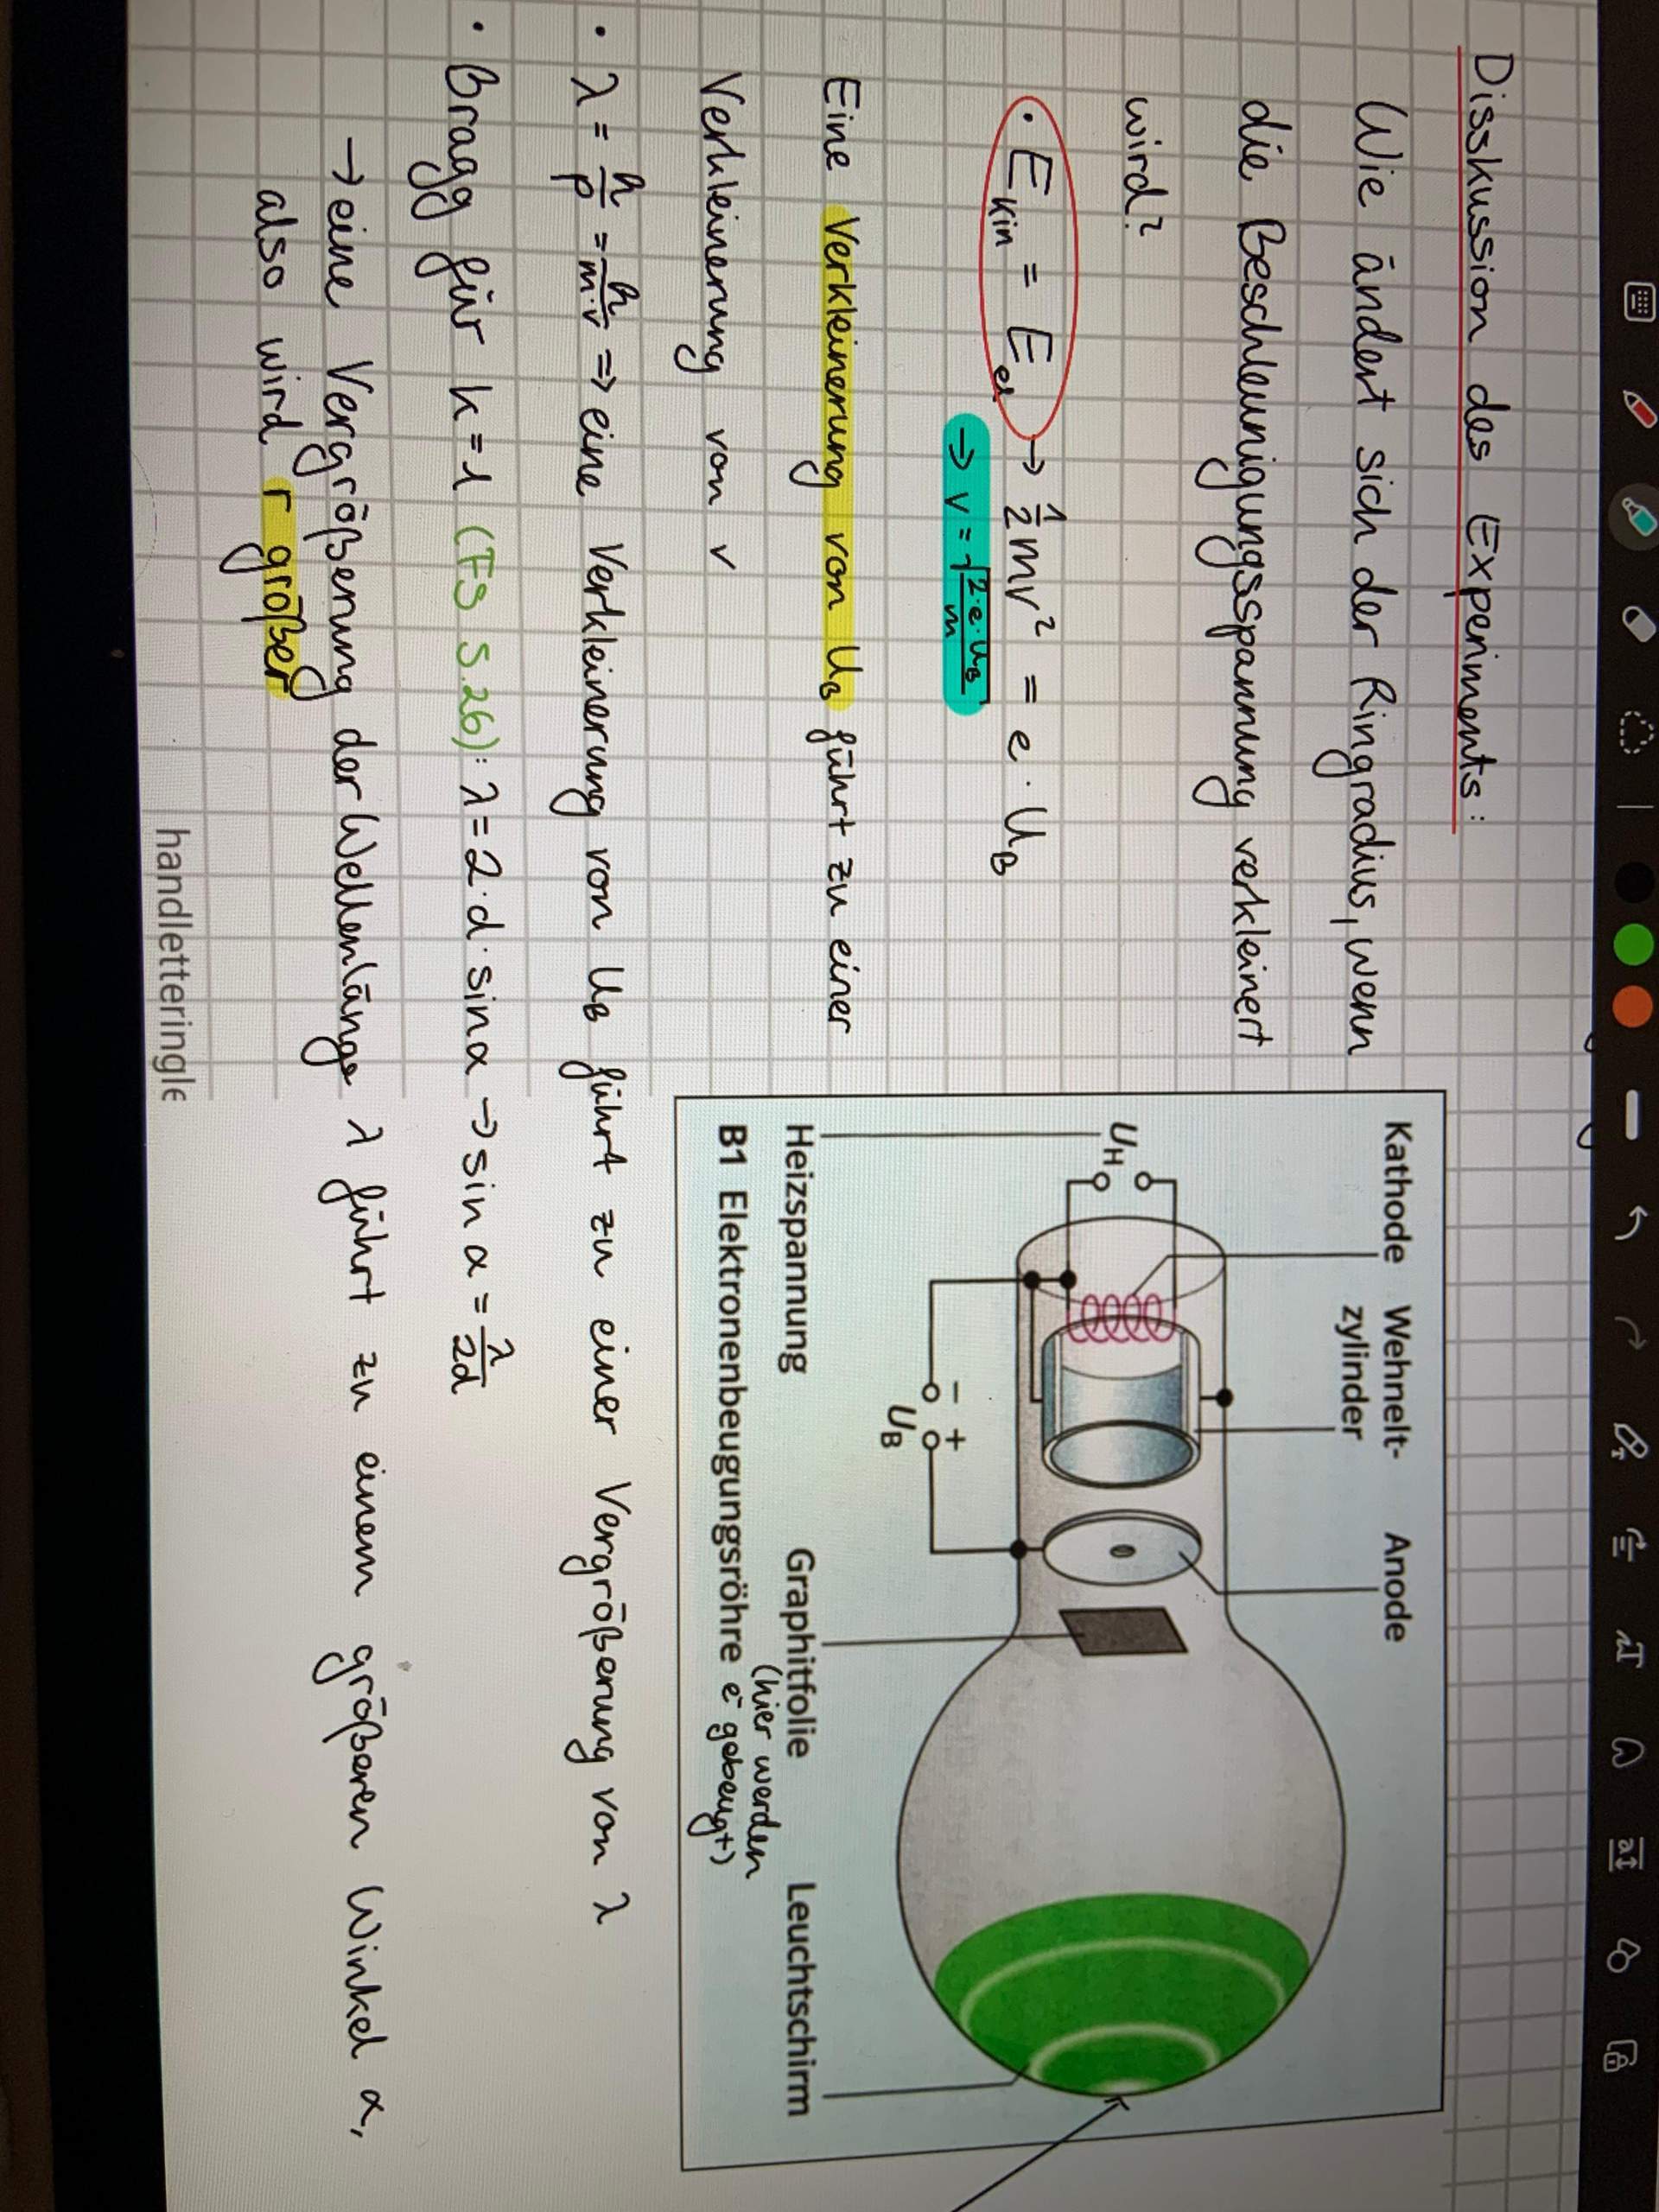 Disskussion des Experiments:
Wie ändert sich der Ringradius, wenn
die Beschleunigungsspannung verkleinert
wird?
• E_kin = E_el → 1/2 mv² = e · U_B
→ v = √(2·e·U_B/m)
Eine Verkleinerung von U_B führt zu einer
Verkleinerung von v
• λ = h/p = h/m·v ⇒ eine Verkleinerung von U_B führt zu einer Vergrößerung von λ
• Bragg für k = 1 (FS S.26): λ = 2·d·sinα → sin α = λ/2d
→ eine Vergrößerung der Wellenlänge λ führt zu einem größeren Winkel α,
also wird r größer
Kathode Wehnelt- Anode
zylinder
U_H
− +
U_B
Heizspannung Graphitfolie Leuchtschirm
(hier werden
e⁻ gebeugt)
B1 Elektronenbeugungsröhre
handletteringle